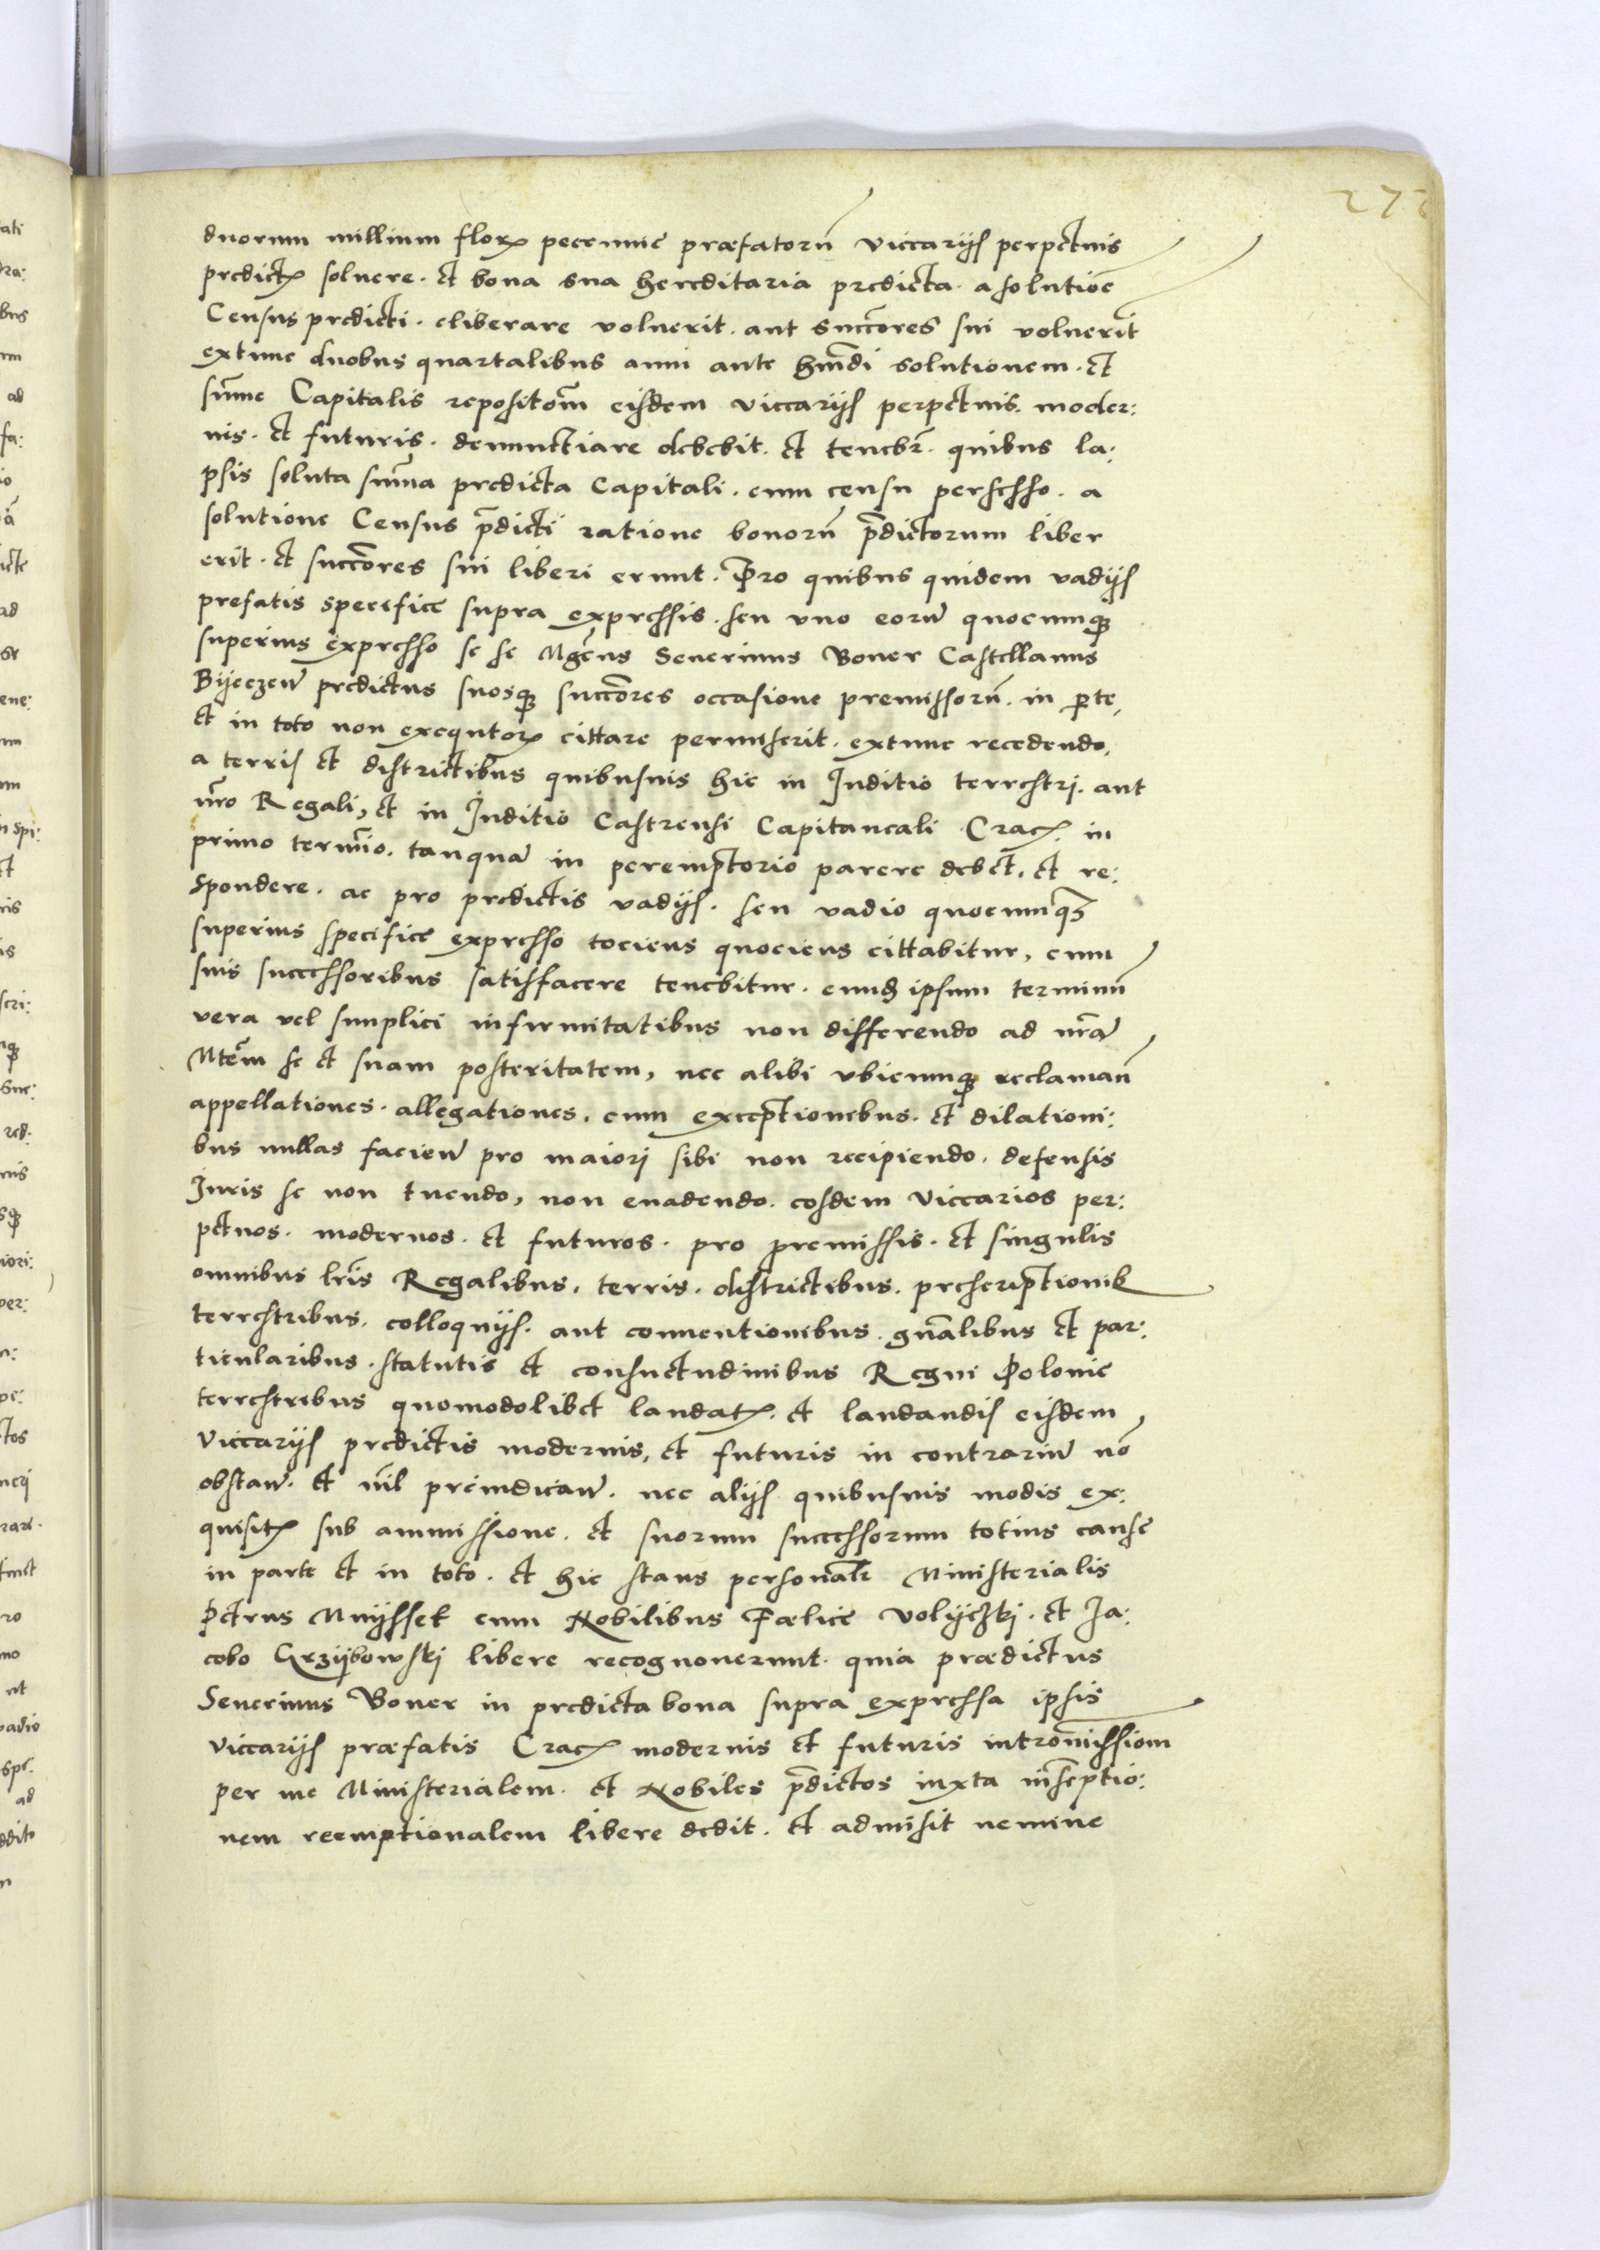 duorum millium florꝫ pecunie præfatorū viccarijs perpetuis
predictꝫ soluere. et bona sua hereditaria predicta. a solutiōe
Census predicti. eliberare voluerit. aut succōres sui voluerīt
extunc duobus quartalibus anni ante hmōdi solutionem. et
sūme Capitalis repositōm eisdem viccarijs perpetuis. moder:
nis. et futuris. denunctiare debebit. et tenebr̄. quibus la:
psis soluta sum̄a predicta Capitali. cum censu persesso. a
solutione Census p̄dicti ratione bonorū p̄dictorum liber
erit. et succōres sui liberi erunt. Pro quibus quidem vadijs
prefatis specifice supra expressis. seu vno eorū quocunqꝫ
superius expresso se se Mgcūs Seuerinus Boner Castellanus
Byeczeń predictus suosqꝫ succōres occasione premissorū. in ꝑte,
et in toto non exequtorꝫ cittare permiserit. extunc recedendo,
a terris et districtibus quibusuis hic in Juditio terrestrj. aut
nr̄o Regali, et in Juditio Castrensi Capitaneali Cracꝫ. in
primo termīo. tanquā in peremptorio parere debet. et re:
spondere. ac pro predictis vadijs. seu vadio quocunqꝫ
superius specifice expresso tociens quociens cittabitur, cum
suis successoribus satisfacere tenebitur. eundꝫ ipsum terminū
vera vel simplici infirmitatibus non differendo ad nr̄ā
Mtēm se et suam posteritatem, nec alibi vbicunqꝫ reclamań
appellationes. allegationes. cum exceptionibus. et dilationi:
bus nullas facień pro maiorj sibi non recipiendo. defensis
Juris se non tuendo, non euadendo. eosdem viccarios per:
petuos. modernos. et futuros. pro premissis. et singulis
omnibus lrīs Regalibus. terris. districtibus. prescriptionibꝫ
terrestribus. colloquijs. aut conuentionibus. gnālibus et par:
ticularibus. statutis et consuetudinibus Regni Polonie
terrestribus quomodolibet laudatꝫ. et laudandis eisdem
Viccarijs predictis modernis, et futuris in contrariū nō
obstań. et nīl preiudicań. nec alijs quibusuis modis ex:
quisitꝫ sub ammissione. et suorum successorum totius cause
in parte et in toto. et hic stans personālr Ministerialis
Petrus Myssek cum Nobilibus Fælice Volyczkj. et Ja:
cobo Grzybowskj libere recognouerunt. quia prædictus
Seuerinus Boner in predicta bona supra expressa ipsis
viccarijs præfatis Cracꝫ modernis et futuris intromīssiom
per me Ministerialem. et Nobiles p̄dictos iuxta inscrīptio:
nem reemptionalem libere dedit. et admisit nemine